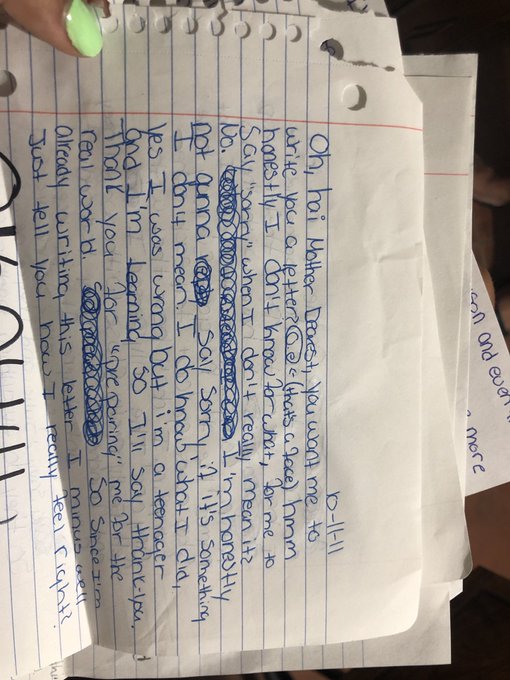 10-11-11
Oh, hai Mother Dearest, you want me to
write you a letter? (that's a face) hmm
honestly I don't know for what, for me to
say "sorry" when I don't really mean it?
No. I'm honestly
not gunna say sorry if it's something
I don't mean. I do know what I did,
yes I was wrong but i'm a teenager
and I'm learning, so I'll say thank-you,
Thank you for "prepairing" me for the
real world. So since I'm
already writing this letter I minus well
Just tell you how I really feel right?
son and even i
more